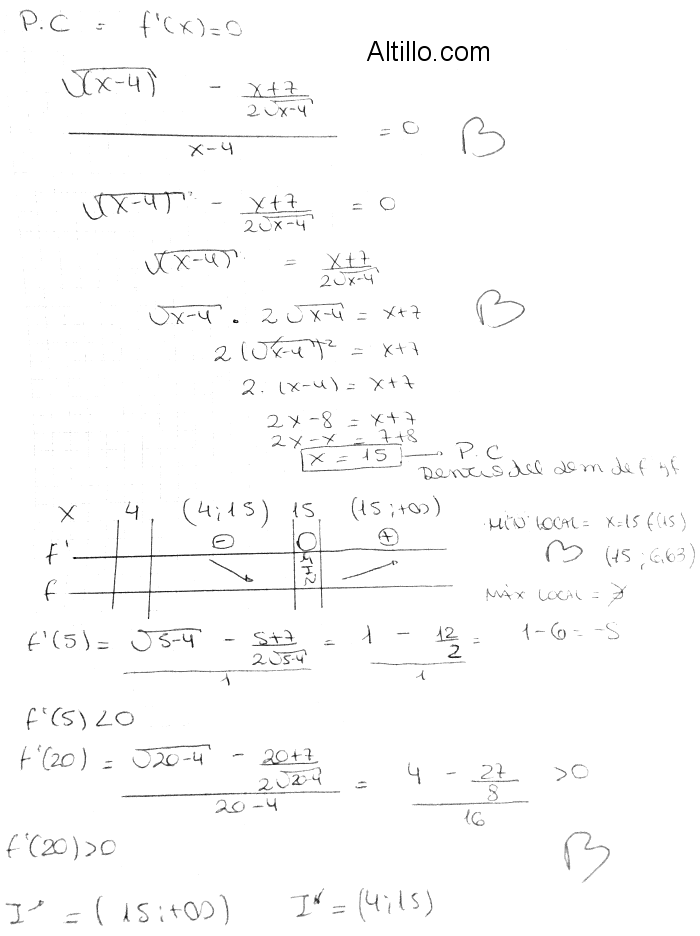 P.C = f'(x)=0
Altillo.com
√(x-4) - x+7/2√x-4
x-4
= 0 B
√(x-4) - x+7/2√x-4 = 0
√(x-4) = x+7/2√x-4
√x-4 . 2√x-4 = x+7 B
2(√x-4)² = x+7
2.(x-4) = x+7
2x-8 = x+7
2x-x = 7+8
x = 15 → P.C
Dentro del dom de f y f
x 4 (4;15) 15 (15;+∞)
f' ⊖ 0 ⊕
f ↘ ↗
MÍN LOCAL = x=15 f(15)
B (15; 6,63)
MÁX LOCAL = ∄
f'(5) = √5-4 - 5+7/2√5-4 = 1 - 12/2 = 1-6 = -5
1 1
f'(5) < 0
f'(20) = √20-4 - 20+7/2√20-4 = 4 - 27/8 > 0
20-4 16
f'(20) > 0
B
I↗ = (15;+∞) I↘ = (4;15)